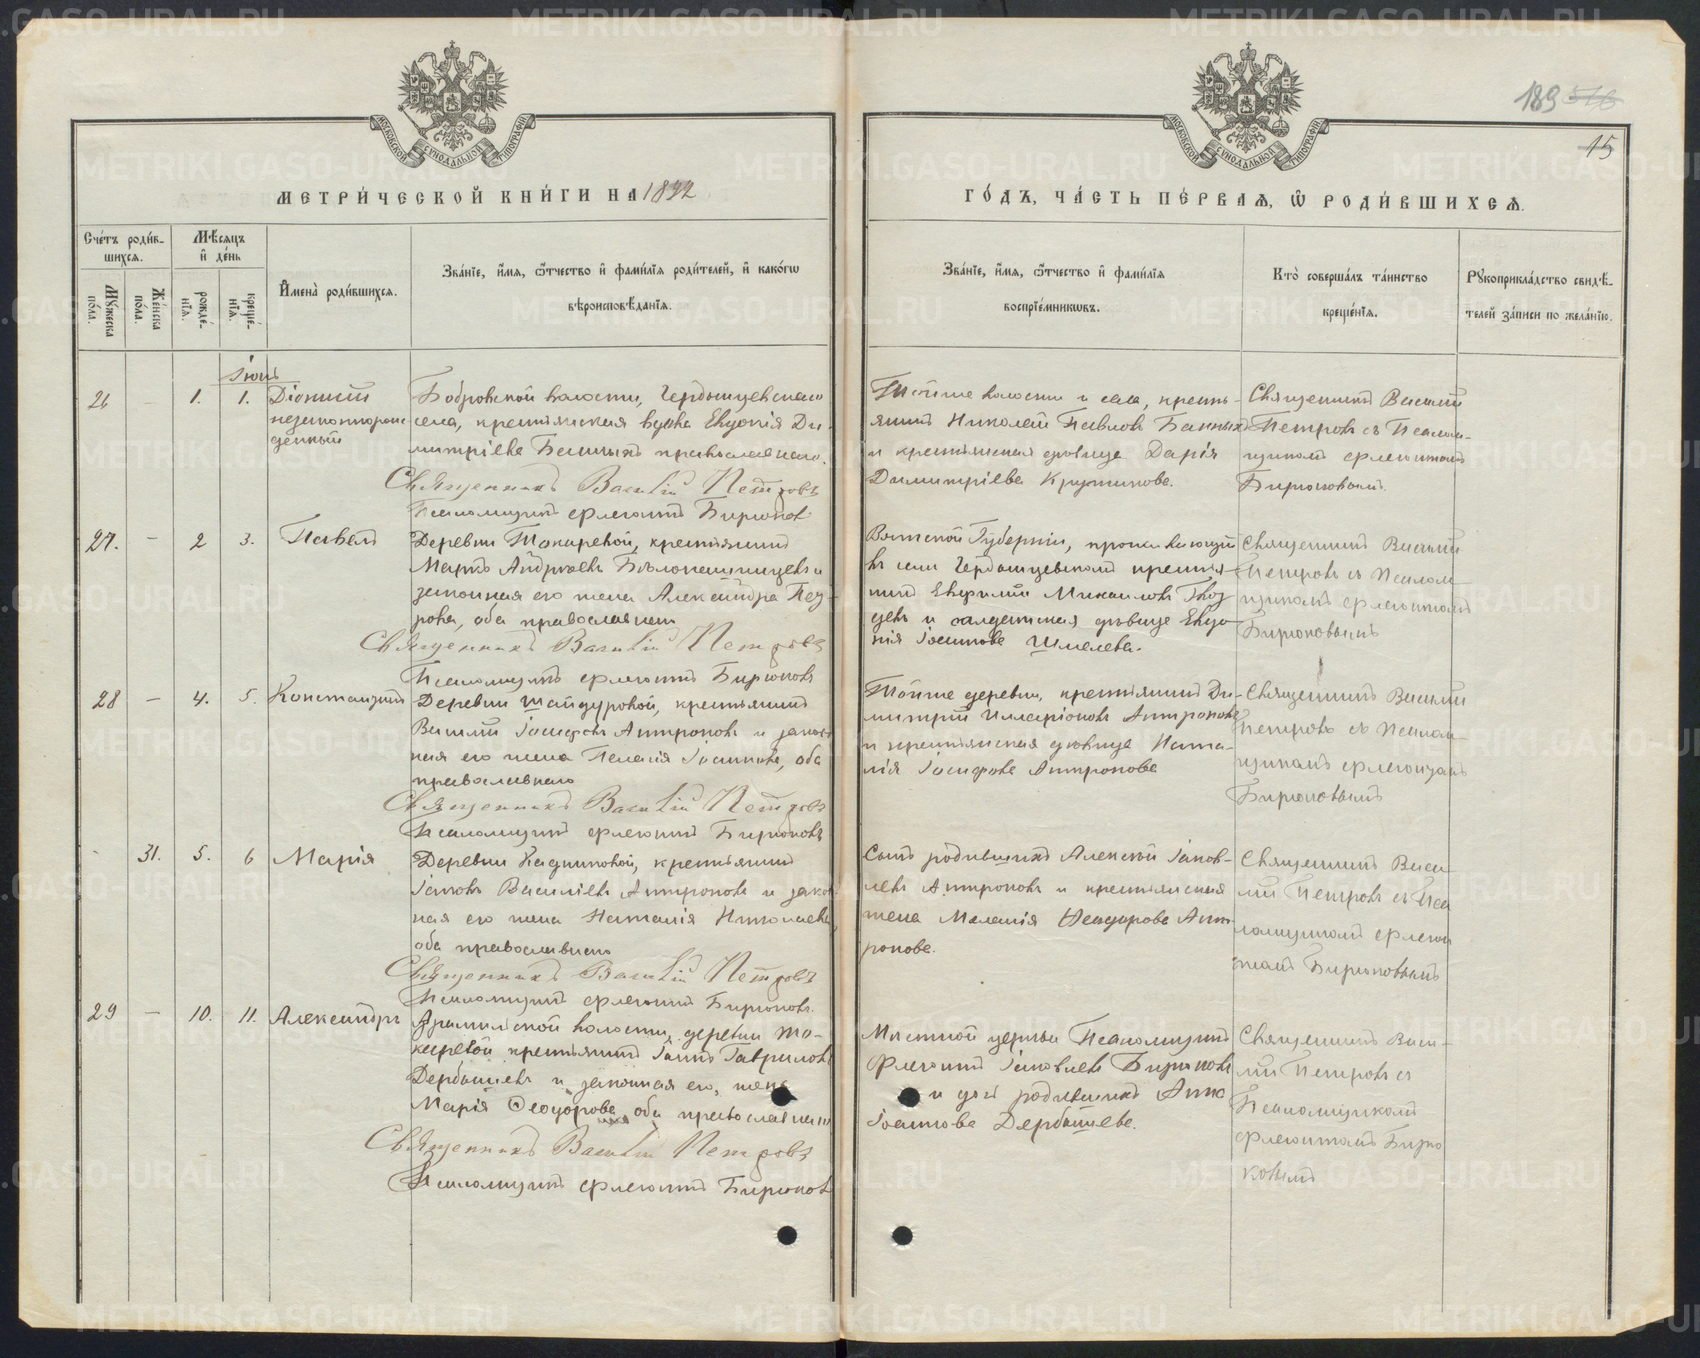 189 516
15
МОСКОВСКОЙ СѴНОДАЛЬНОЙ ТИПОГРАФІИ
МОСКОВСКОЙ СѴНОДАЛЬНОЙ ТИПОГРАФІИ
МЕТРИ́ЧЕСКОЙ КНИ́ГИ НА 1892
ГО́ДЪ, ЧА́СТЬ ПЕ́РВАѦ, Ѡ҆ РОДИ́ВШИХСѦ.
Сче́тъ роди́в-
шихсѧ.
Мꙋ́жеска по́ла.
Же́нска по́ла.
Мѣ́сѧцъ
и҆ де́нь
рожде́-
нїѧ.
креще́-
нїѧ.
И҆мена̀ роди́вшихсѧ.
Зва́нїе, и҆́мѧ, ѻ҆́тчество и҆ фами́лїѧ роди́телей, и҆ како́гѡ
вѣроисповѣ́данїѧ.
Зва́нїе, и҆́мѧ, ѻ҆́тчество и҆ фами́лїѧ
воспрїе́мникѡвъ.
Кто̀ соверша́лъ та́инство
креще́нїѧ.
Рꙋкоприкла́дство свидѣ́-
телей за́писи по жела́нїю.
Іюнь
26 — 1. 1. Діонисій
незаконнорож-
денный
Бобровской волости, Чердынцевскаго
села, крестьянская вдова Евдокія Ди-
митріева Банныхъ православнаго.
Священникъ Василій Петровъ
Псаломщикъ Флегонтъ Бирюковъ
Тойже волости и села, кресть-
янинъ Николай Павловъ Банныхъ
и крестьянская дѣвица Дарія
Димитріева Крутикова.
Священникъ Василій
Петровъ съ Псалом-
щикомъ Флегонтомъ
Бирюковымъ.
27. — 2 3. Павелъ
Деревни Токаревой, крестьянинъ
Маркъ Андреевъ Бѣлопашинцевъ и
законная его жена Александра Пет-
рова, оба православнаго
Священникъ Василій Петровъ
Псаломщикъ Флегонтъ Бирюковъ
Вятской Губерніи, проживающій
въ селѣ Чердынцевскомъ крестья-
нинъ Евфимій Михаиловъ
и солдатская дѣвица Евдо-
кія Іоаннова Шмелева.
Священникъ Василій
Петровъ съ Псалом-
щикомъ Флегонтомъ
Бирюковымъ
28 — 4. 5. Константинъ
Деревни Шайдуровой, крестьянинъ
Василій Іосифовъ Антроповъ и закон-
ная его жена Пелагія Іоаннова, оба
православнаго
Священникъ Василій Петровъ
Псаломщикъ Флегонтъ Бирюковъ
Тойже деревни, крестьянинъ Ди-
митрій Илларіоновъ Антроповъ
и крестьянская дѣвица Ната-
лія Іосифова Антропова
Священникъ Василій
Петровъ съ Псалом-
щикомъ Флегонтомъ
Бирюковымъ
- 31. 5. 6 Марія
Деревни Кадниковой, крестьянинъ
Іаковъ Василіевъ Антроповъ и закон-
ная его жена Наталія Николаева,
оба православнаго
Священникъ Василій Петровъ
Псаломщикъ Флегонтъ Бирюковъ.
Сынъ родившихъ Алексѣй Іаков-
левъ Антроповъ и крестьянская
жена Меланія Ѳеодорова Ант-
ропова.
Священникъ Васи-
лій Петровъ съ Пса
ломщикомъ Флегон
томъ Бирюковымъ
29 — 10. 11. Александръ
Арамильской волости, деревни То-
каревой крестьянинъ Іоаннъ Гавриловъ
Дербышевъ и законная его, жена
Марія Ѳеодорова, оба православнаго
Священникъ Василій Петровъ
Псаломщикъ Флегонтъ Бирюковъ
Мѣстной церкви Псаломщикъ
Флегонтъ Іаковлевъ Бирюковъ
и дочь родившихъ Анна
Іоаннова Дербышева.
Священникъ Васи-
лій Петровъ съ
Псаломщикомъ
Флегонтомъ Бирю
ковымъ
METRIKI.GASO-URAL.RU